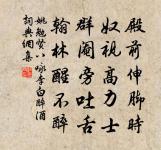 殿前伸腳時
奴視高力士
群閹旁吐舌
翰林醒不醉
姚勉賢八詠李白醉酒
詞典網集